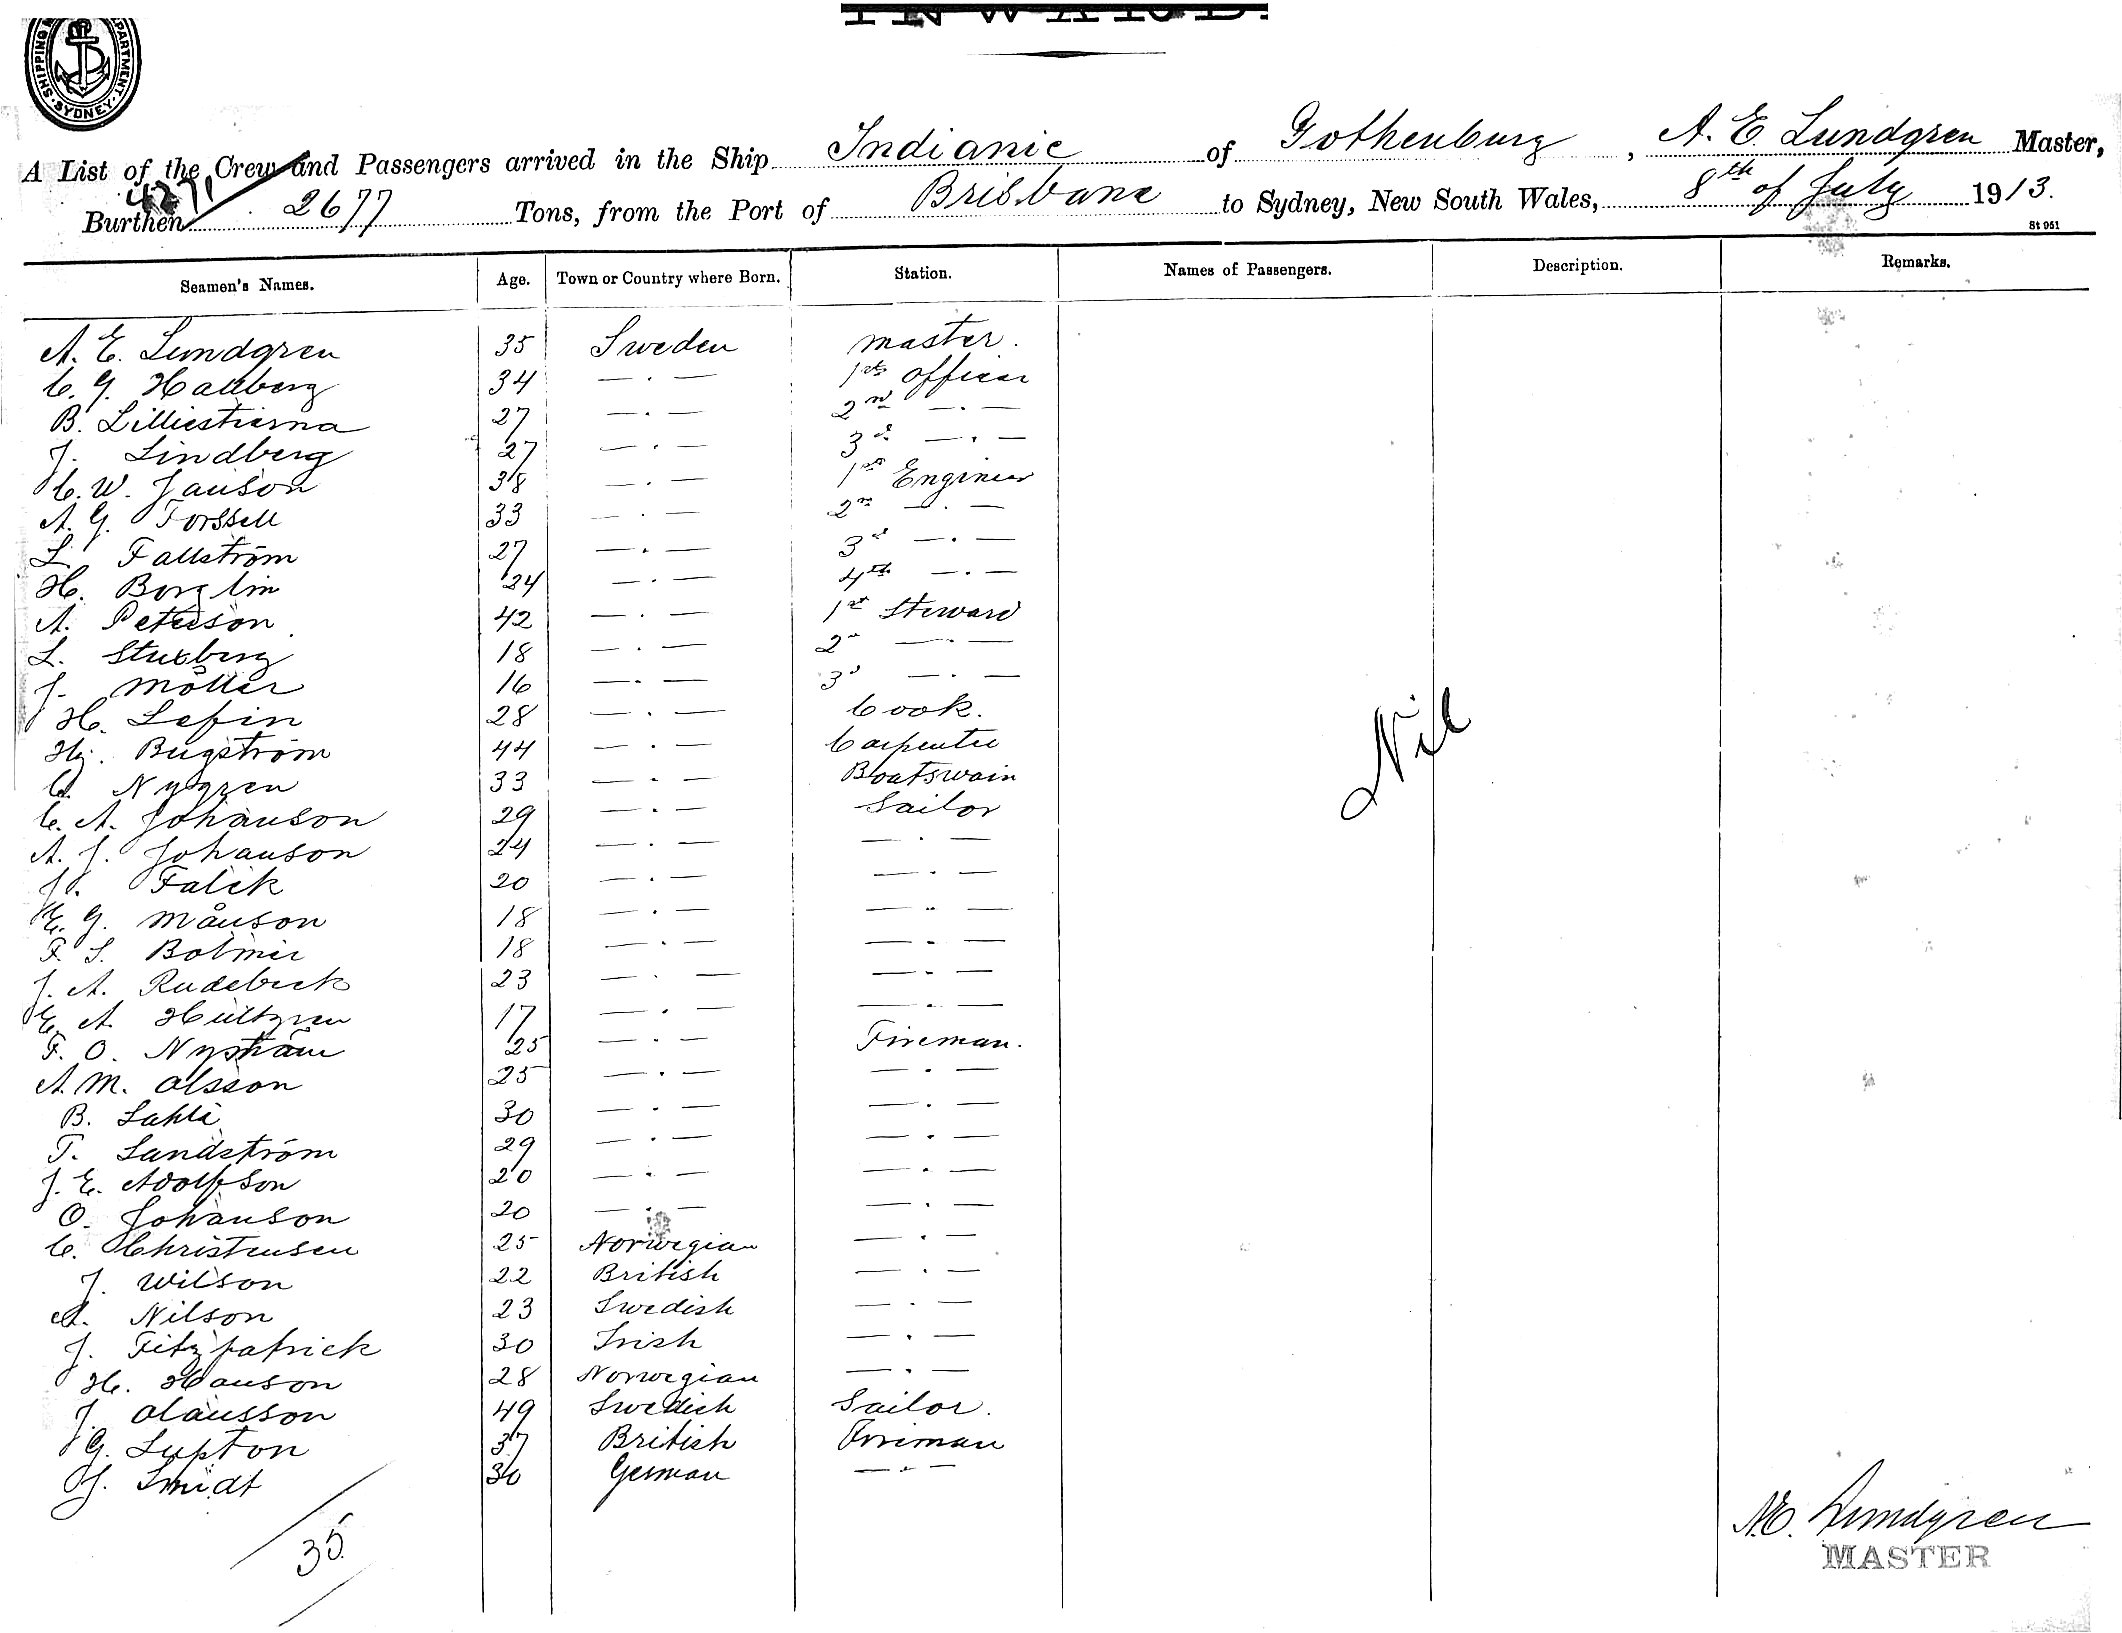 INWARD.
SHIPPING PARTMENT. SYDNEY.
A List of the Crew and Passengers arrived in the Ship Indianic of Gothenburg, A. E. Lundgren Master,
4271
Burthen 2677 Tons, from the Port of Brisbane to Sydney, New South Wales, 8th of July 1913.
St 951
Seamen's Names. Age. Town or Country where Born. Station. Names of Passengers. Description. Remarks.
A. E. Lundgren 35 Sweden master.
C. G. Hallberg 34 — . — 1st officer
B. Lilliestierna 27 — . — 2nd — . —
J. Lindberg 27 — . — 3d — . —
C. W. Janson 38 — . — 1st Engineer
A. G. Forssell 33 — . — 2nd — . —
L. Fallström 27 — . — 3d — . —
H. Borglin 24 — . — 4th — . —
A. Peterson 42 — . — 1st Steward
L. Stuxberg 18 — . — 2n — . —
J. Möller 16 — . — 3d — . —
H. Lefin 28 — . — Cook.
Hj. Bergström 44 — . — Carpenter
C. Nygren 33 — . — Boatswain
C. A. Johanson 29 — . — Sailor
A. J. Johanson 24 — . — — . —
J. Falck 20 — . — — . —
E. G. Månson 18 — . — — . —
F. S. Bolmer 18 — . — — . —
J. A. Rudebeck 23 — . — — . —
E. A. Hultgren 17 — . — — . —
F. O. Nyström 25 — . — Fireman.
A. M. Olsson 25 — . — — . —
B. 30 — . — — . —
T. Sandström 29 — . — — . —
J. E. Adolfson 20 — . — — . —
O. Johanson 20 — . — — . —
C. Christensen 25 Norwegian — . —
J. Wilson 22 British — . —
A. Nilson 23 Swedish — . —
J. Fitzpatrick 30 Irish — . —
H. Hanson 28 Norwegian — . —
J. Olausson 49 Swedish Sailor.
G. Lupton 37 British Fireman
J. Smidt 30 German — . —
35
Nil
A. E. Lundgren
MASTER